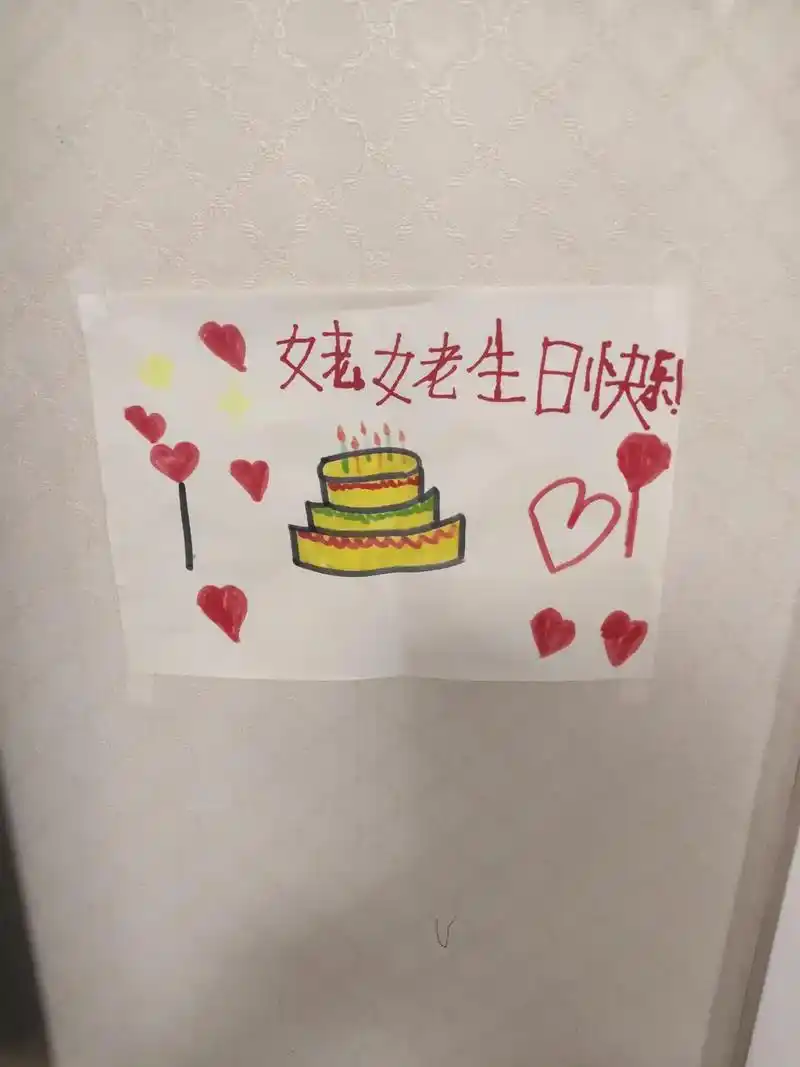 姥姥生日快乐!